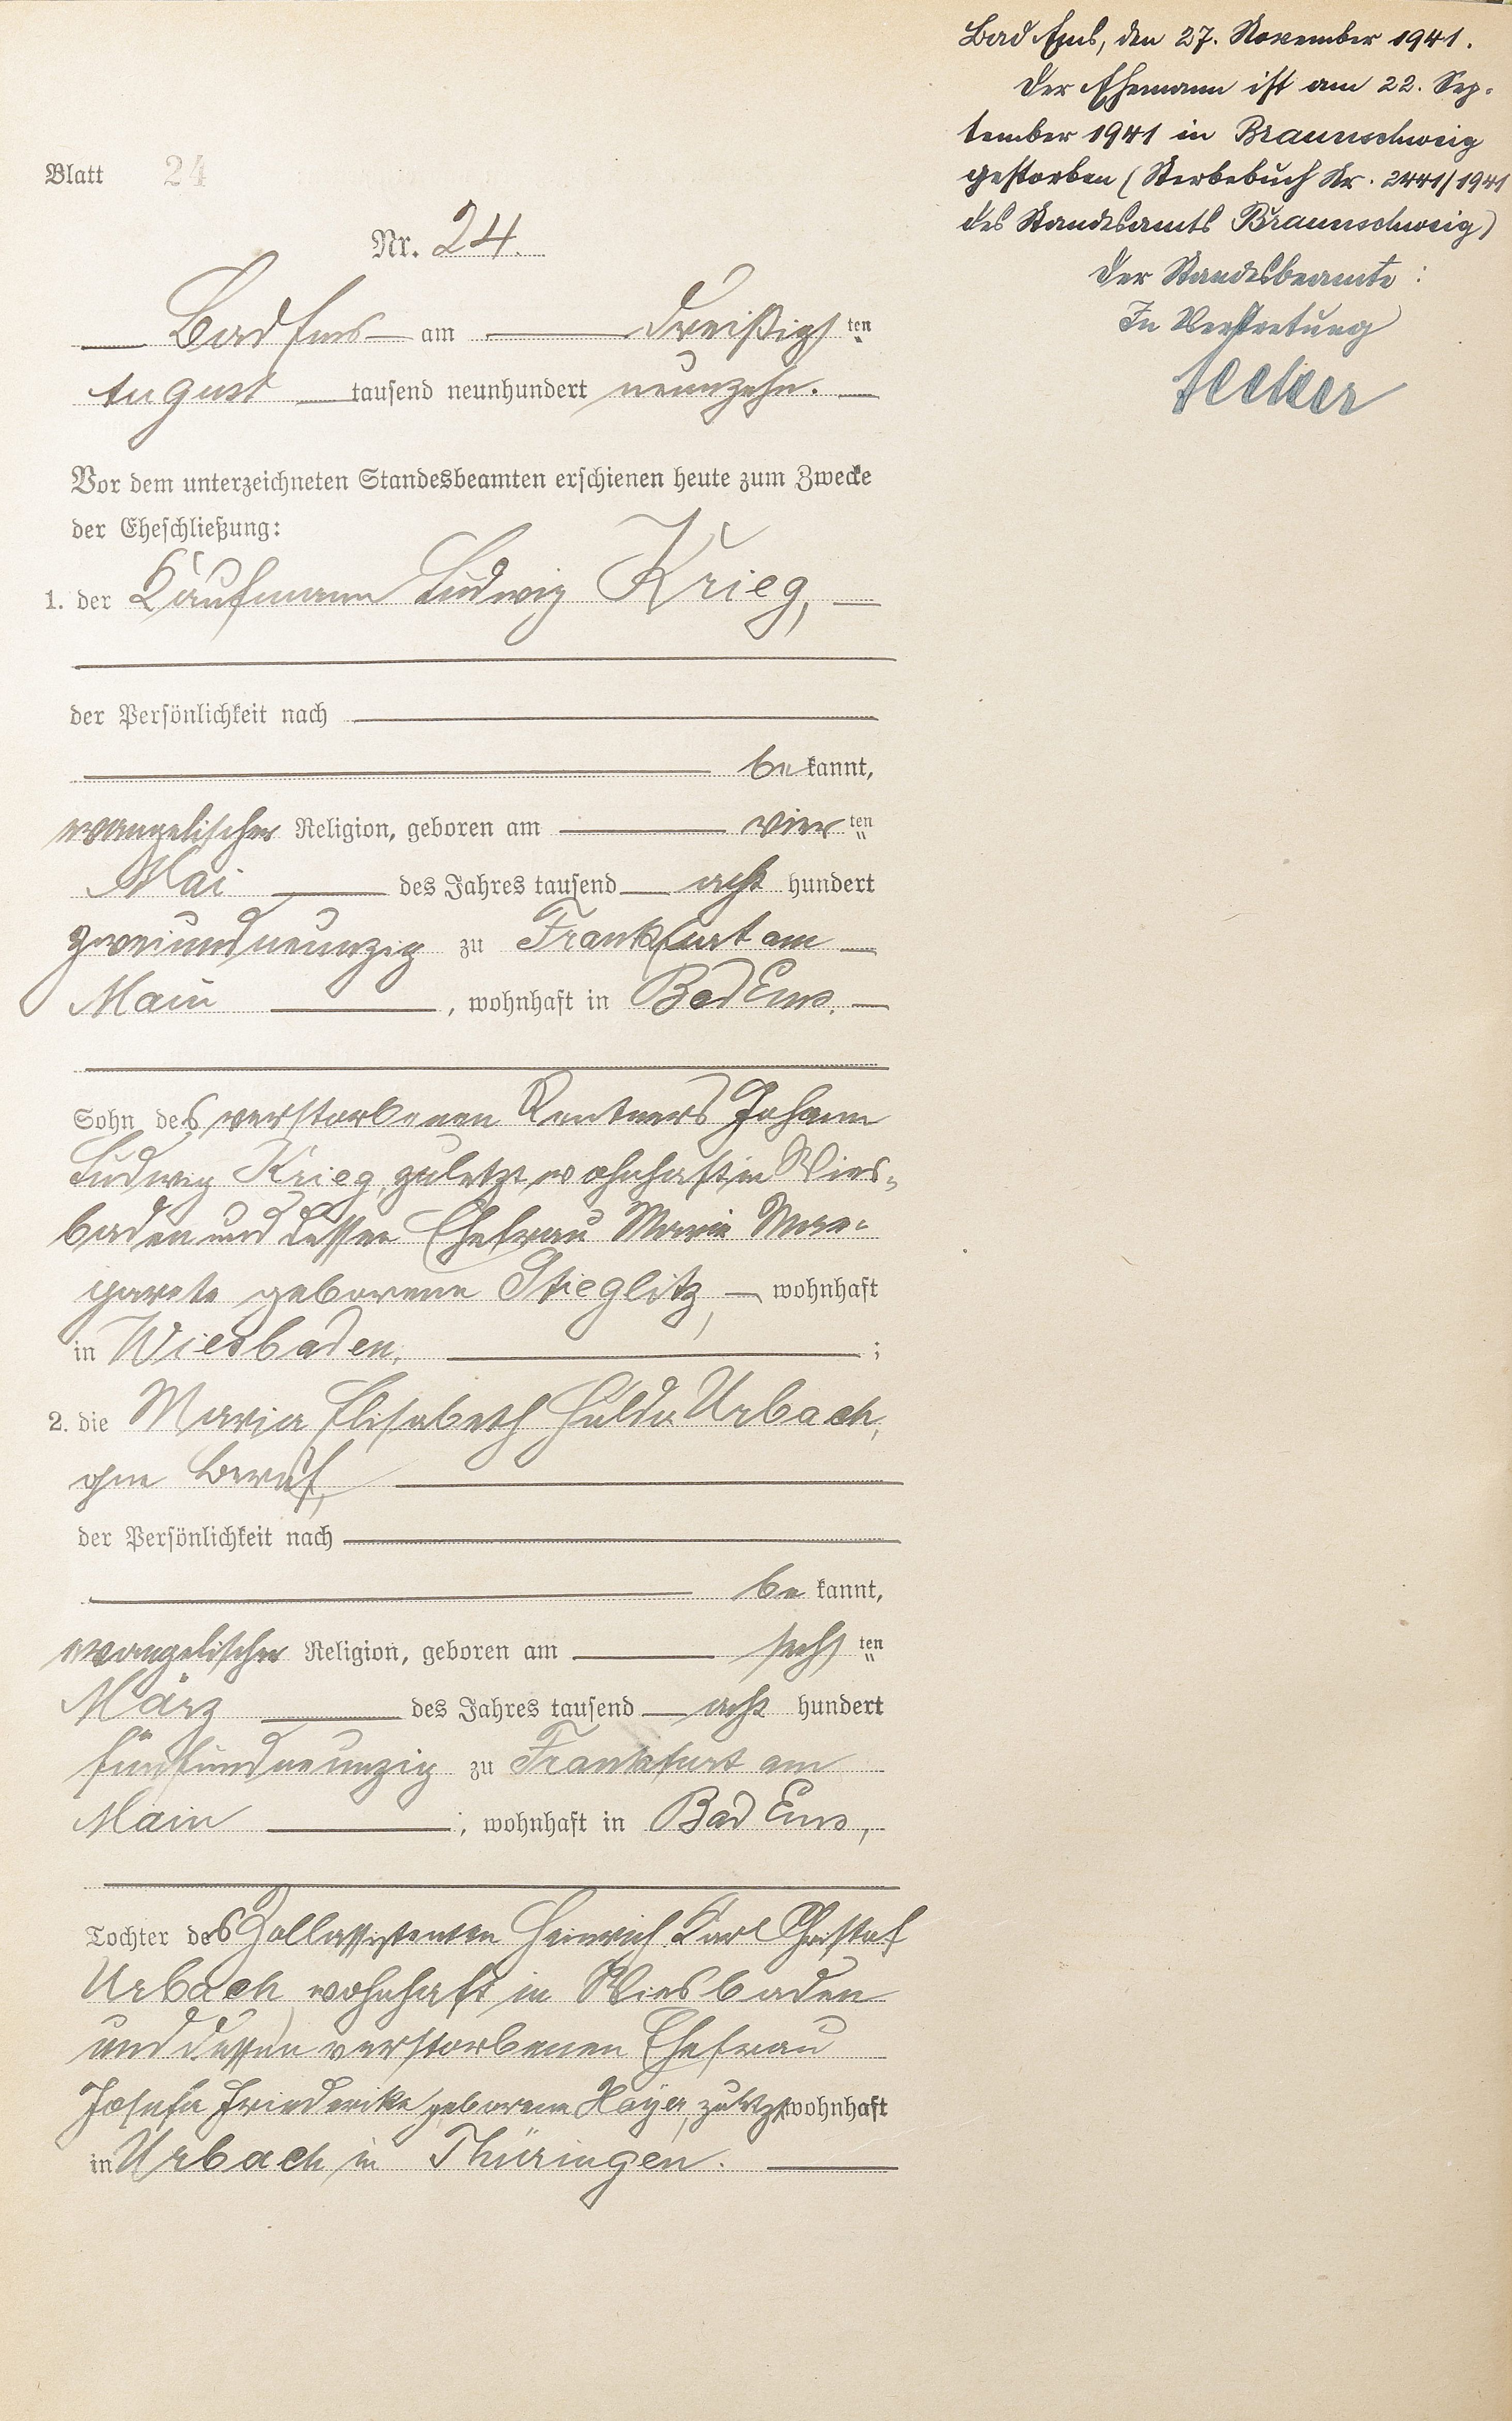 Blatt 24
Nr. 24.
Bad Ems am dreißigsten
August tausend neunhundert neunzehn.
Vor dem unterzeichneten Standesbeamten erschienen heute zum Zwecke
der Eheschließung:
1. der Kaufmann Ludwig Krieg,
der Persönlichkeit nach
bekannt,
evangelischer Religion, geboren am vierten
Mai des Jahres tausend acht hundert
zweiundneunzig zu Frankfurt am
Main, wohnhaft in Bad Ems,
Sohn des verstorbenen Rentners Johann
Ludwig Krieg, zuletzt wohnhaft in Wies-
baden und dessen Ehefrau Marie Mar-
garete geborene Stieglitz, wohnhaft
in Wiesbaden, ;
2. die Maria Elisabeth Hulda Urbach,
ohne Beruf,
der Persönlichkeit nach
bekannt,
evangelischer Religion, geboren am sechsten
März des Jahres tausend acht hundert
fünfundneunzig zu Frankfurt am
Main, wohnhaft in Bad Ems,
Tochter des Zollassistenten Heinrich Karl Christof
Urbach, wohnhaft in Wiesbaden
und dessen verstorbenen Ehefrau
Josefa Friederike geborene zuletzt wohnhaft
in Urbach in Thüringen.
Bad Ems, den 27. November 1941.
Der Ehemann ist am 22. Sep-
tember 1941 in Braunschweig
gestorben (Sterbebuch Nr. 2441/1941
des Standesamts Braunschweig)
Der Standesbeamte:
In Vertretung